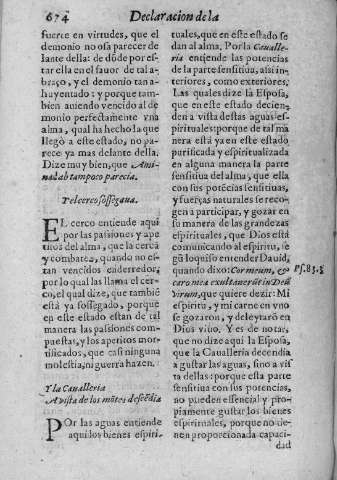 674 Declaracion de la
fuerte en virtudes, que el
demonio no osa parecer de
lante della: de dōde por es-
tar ella en el fauor de tal a-
braço, y el demonio tan a-
huyentado: y porque tam-
bien auiendo vencido al de
monio perfectamente vna
alma, qual ha hecho la que
llegò a este estado, no pa-
rece ya mas delante della.
Dize muy bien, que Ami-
nadab tampoco parecia.
Y el cerco sossegaua.
EL cerco entiende aqui
por las passiones, y ape
titos del alma, que la cerca
y combate, quando no es-
tan vencidos en derredor,
por lo qual las llama el cer-
co, el qual dize, que tambiē
està ya sossegado, porque
en este estado estan de tal
manera las passiones com-
puestas, y los apetitos mor-
tificados, que casi ninguna
molestia, ni guerra hazen.
Y la Cauallería
A vista de los mōtes descēdia
POr las aguas entiende
aqui los bienes espiri-
tuales, que en este estado se
dan al alma. Por la Caualle-
ria entiende las potencias
de la parte sensitiua, assi in-
teriores, como exteriores.
Las quales dize la Esposa,
que en este estado decien-
den a vista destas aguas es-
pirituales: porque de tal ma
nera está ya en este estado
purificada y espiritualizada
en alguna manera la parte
sensitiua del alma, que ella
con sus potēcias sensitiuas,
y fuerças naturales se reco-
gen a participar, y gozar en
su manera de las grandezas
espirituales, que Dios està
comunicando al espiritu, se
gū lo quiso entender Dauid,
quando dixo: Cor meum, &
caro mea exultauerūt in Deū
viuum, que quiere dezir: Mi
espiritu, y mi carne en vno
se gozaron, y deleytarō en
Dios viuo. Y es de notar,
que no dize aqui la Esposa,
que la Cauallería decendia
a gustar las aguas, sino a vis
ta dellas: porque esta parte
sensitiua con sus potencias,
no pueden essencial y pro-
piamente gustar los bienes
espirituales, porque no tie-
nen proporcionada capaci-
dad
Ps. 83.3